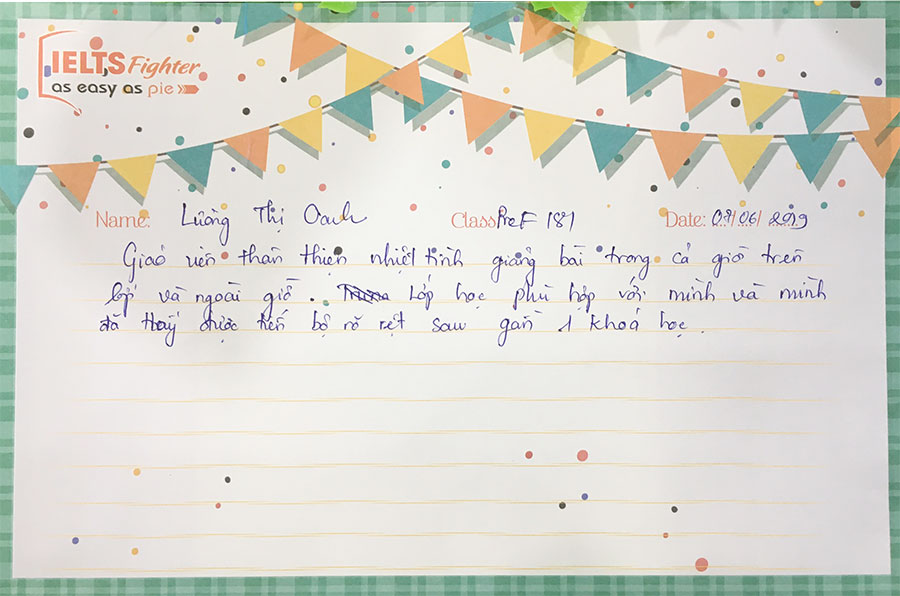 IELTS Fighter
as easy as pie
Name: Lường Thị Oanh Class: PreF 181 Date: 07/06/2019
Giáo viên thân thiện nhiệt tình giảng bài trong cả giờ trên
lớp và ngoài giờ. Lớp học phù hợp với mình và mình
đã thấy được tiến bộ rõ rệt sau gần 1 khoá học.